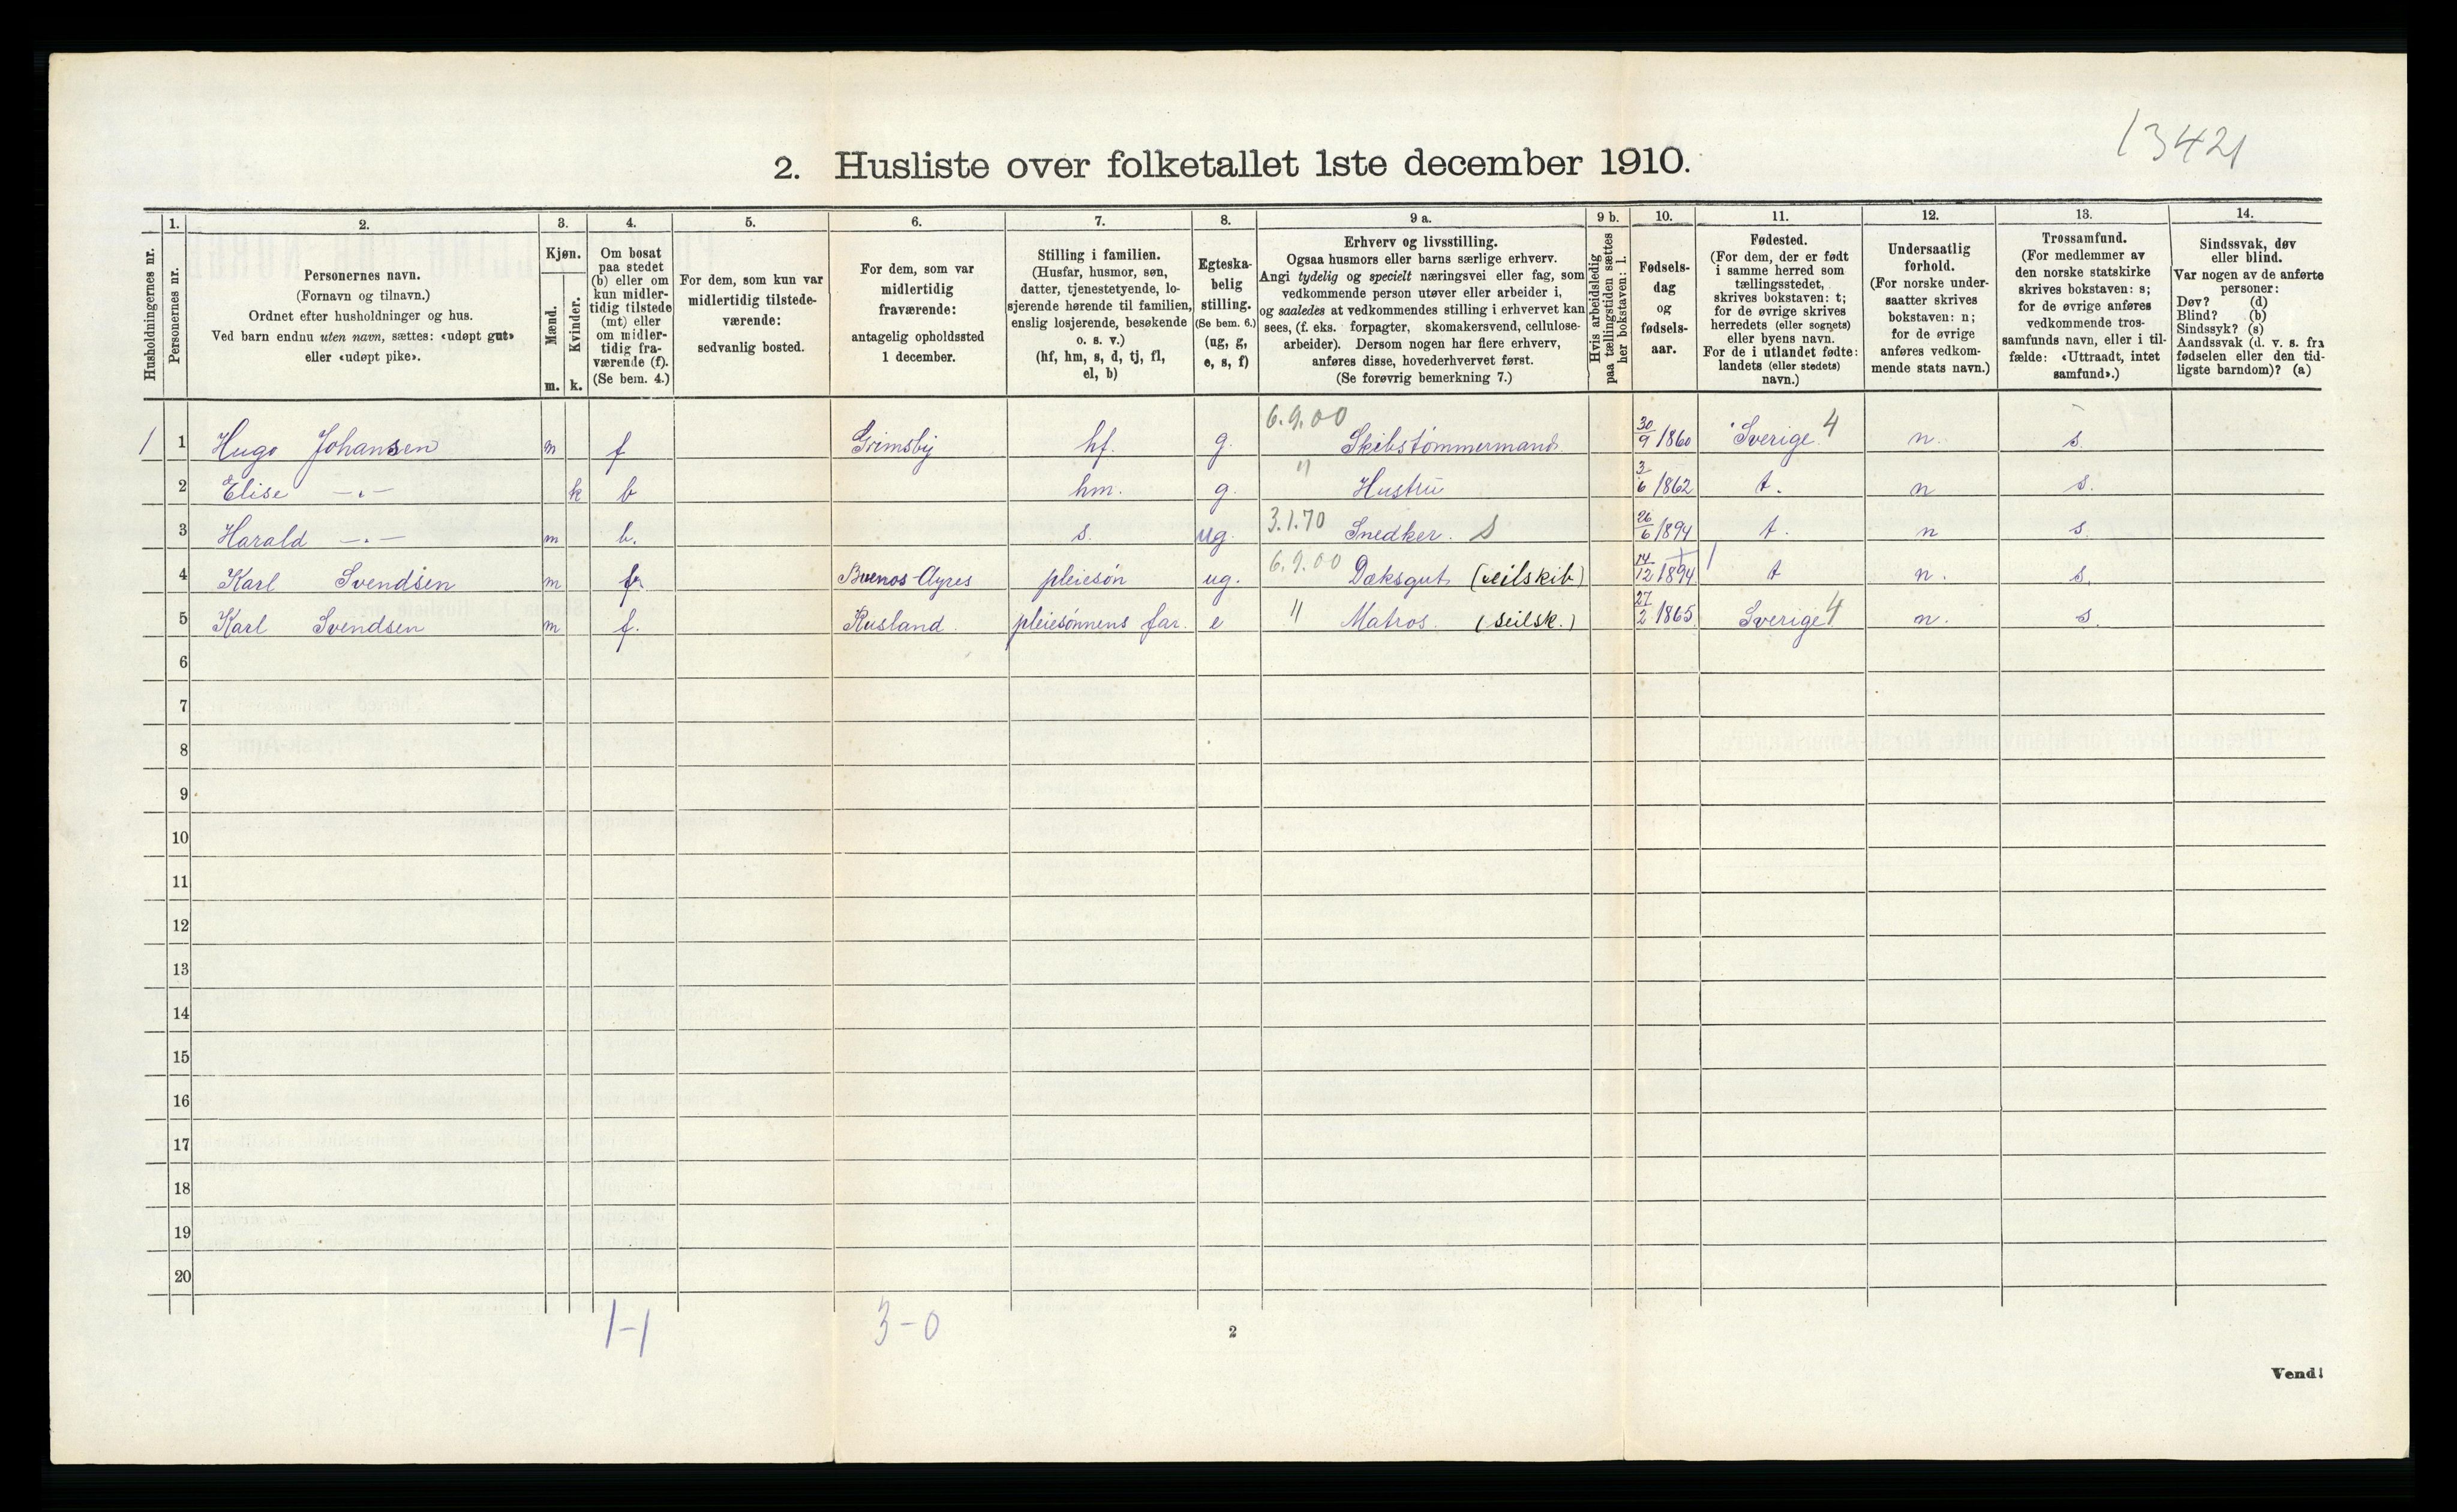 13421
2. Husliste over folketallet 1ste december 1910.
1. 2. 3. 4. 5. 6. 7. 8. 9 a. 9 b. 10. 11. 12. 13. 14.
Husholdningernes nr.
Personernes nr.
Personernes navn.
(Fornavn og tilnavn.)
Ordnet efter husholdninger og hus.
Ved barn endnu uten navn, sættes: «udøpt gut»
eller «udøpt pike».
Kjøn.
Mænd.
Kvinder.
m. k.
Om bosat
paa stedet
(b) eller om
kun midler-
tidig tilstede
(mt) eller
om midler-
tidig fra-
værende (f).
(Se bem. 4.)
For dem, som kun var
midlertidig tilstede-
værende:
sedvanlig bosted.
For dem, som var
midlertidig
fraværende:
antagelig opholdssted
1 december.
Stilling i familien.
(Husfar, husmor, søn,
datter, tjenestetyende, lo-
sjerende hørende til familien,
enslig losjerende, besøkende
o. s. v.)
(hf, hm, s, d, tj, fl,
el, b)
Egteska-
belig
stilling.
(Se bem. 6.)
(ug, g,
e, s, f)
Erhverv og livsstilling.
Ogsaa husmors eller barns særlige erhverv.
Angi tydelig og specielt næringsvei eller fag, som
vedkommende person utøver eller arbeider i,
og saaledes at vedkommendes stilling i erhvervet kan
sees, (f. eks. forpagter, skomakersvend, cellulose-
arbeider). Dersom nogen har flere erhverv,
anføres disse, hovederhvervet først.
(Se forøvrig bemerkning 7.)
Hvis arbeidsledig
paa tællingstiden sættes
her bokstaven: l.
Fødsels-
dag
og
fødsels-
aar.
Fødested.
(For dem, der er født
i samme herred som
tællingsstedet,
skrives bokstaven: t;
for de øvrige skrives
herredets (eller sognets)
eller byens navn.
For de i utlandet fødte:
landets (eller stedets)
navn.)
Undersaatlig
forhold.
(For norske under-
saatter skrives
bokstaven: n;
for de øvrige
anføres vedkom-
mende stats navn.)
Trossamfund.
(For medlemmer av
den norske statskirke
skrives bokstaven: s;
for de øvrige anføres
vedkommende tros-
samfunds navn, eller i til-
fælde: «Uttraadt, intet
samfund».)
Sindssvak, døv
eller blind.
Var nogen av de anførte
personer:
Døv? (d)
Blind? (b)
Sindssyk? (s)
Aandssvak (d. v. s. fra
fødselen eller den tid-
ligste barndom)? (a)
1 1 Hugo Johansen m f Grimsby hf. g. 6.9.00 Skibstømmermand 30/9 1860 Sverige 4 n. s.
2 Elise —„— k b hm. g. " Hustru 3/6 1862 t. n s.
3 Harald —„— m b. s. ug. 3.1.70 Snedker. S 26/6 1894 t. n s.
4 Karl Svendsen m f. Buenos-Ayres pleiesøn ug. 6.9.00 Dæksgut (seilskib) 14/12 1894 t n. s.
5 Karl Svendsen m f. Rusland. pleiesønnens far. e " Matros. (seilsk.) 27/2 1865. Sverige 4 n. s.
6
7
8
9
10
11
12
13
14
15
16
17
18
19
20
1-1 3-0
2
Vend!